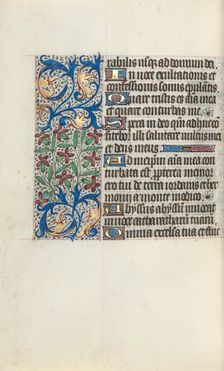 rabilis usqz ad domum dei
In voce exultationis et
confessionis sonus epulātis
Quare tristis es aīa mea
et quare conturbas me
Spera in deo qm̄ adhuc cō
fitebor illi salutare vultus mei
et deus meus
Ad meipm̄ aīa mea con
turbata est propterea memor
ero tui de terra iordanis et her
monij a monte modico
Abyssus abyssū invocat
in voce cataractarū tuarū
Omnia excelsa tua et fluc